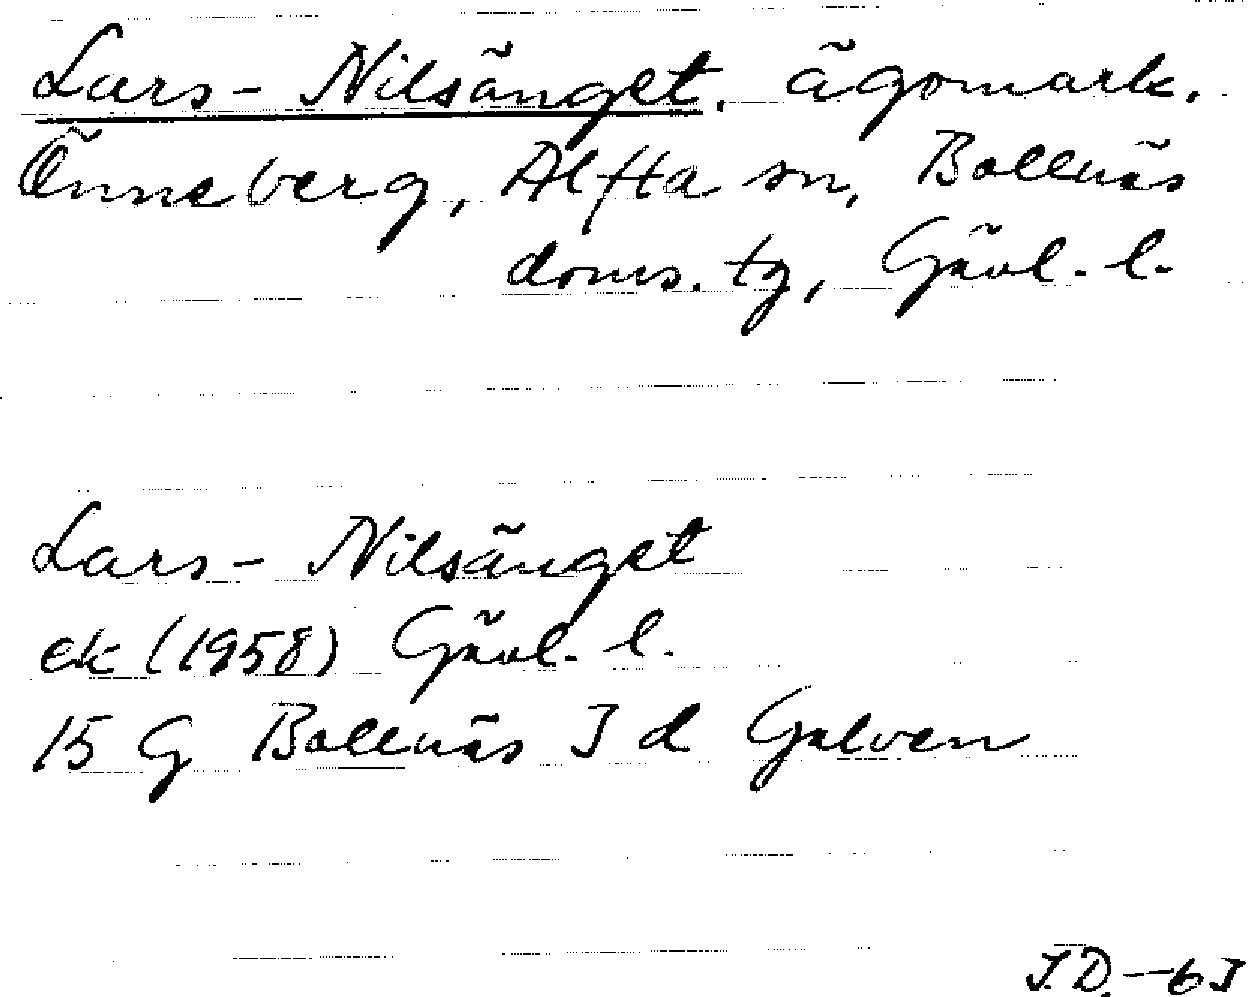 Lars-Nilsänget. ägomark.
Önneberg, Alfta sn, Bollnäs
doms. tg, Gävl. l.
Lars-Nilsänget
ek (1958) Gävl. l.
15 G Bollnäs J d Galven
J.D.-63